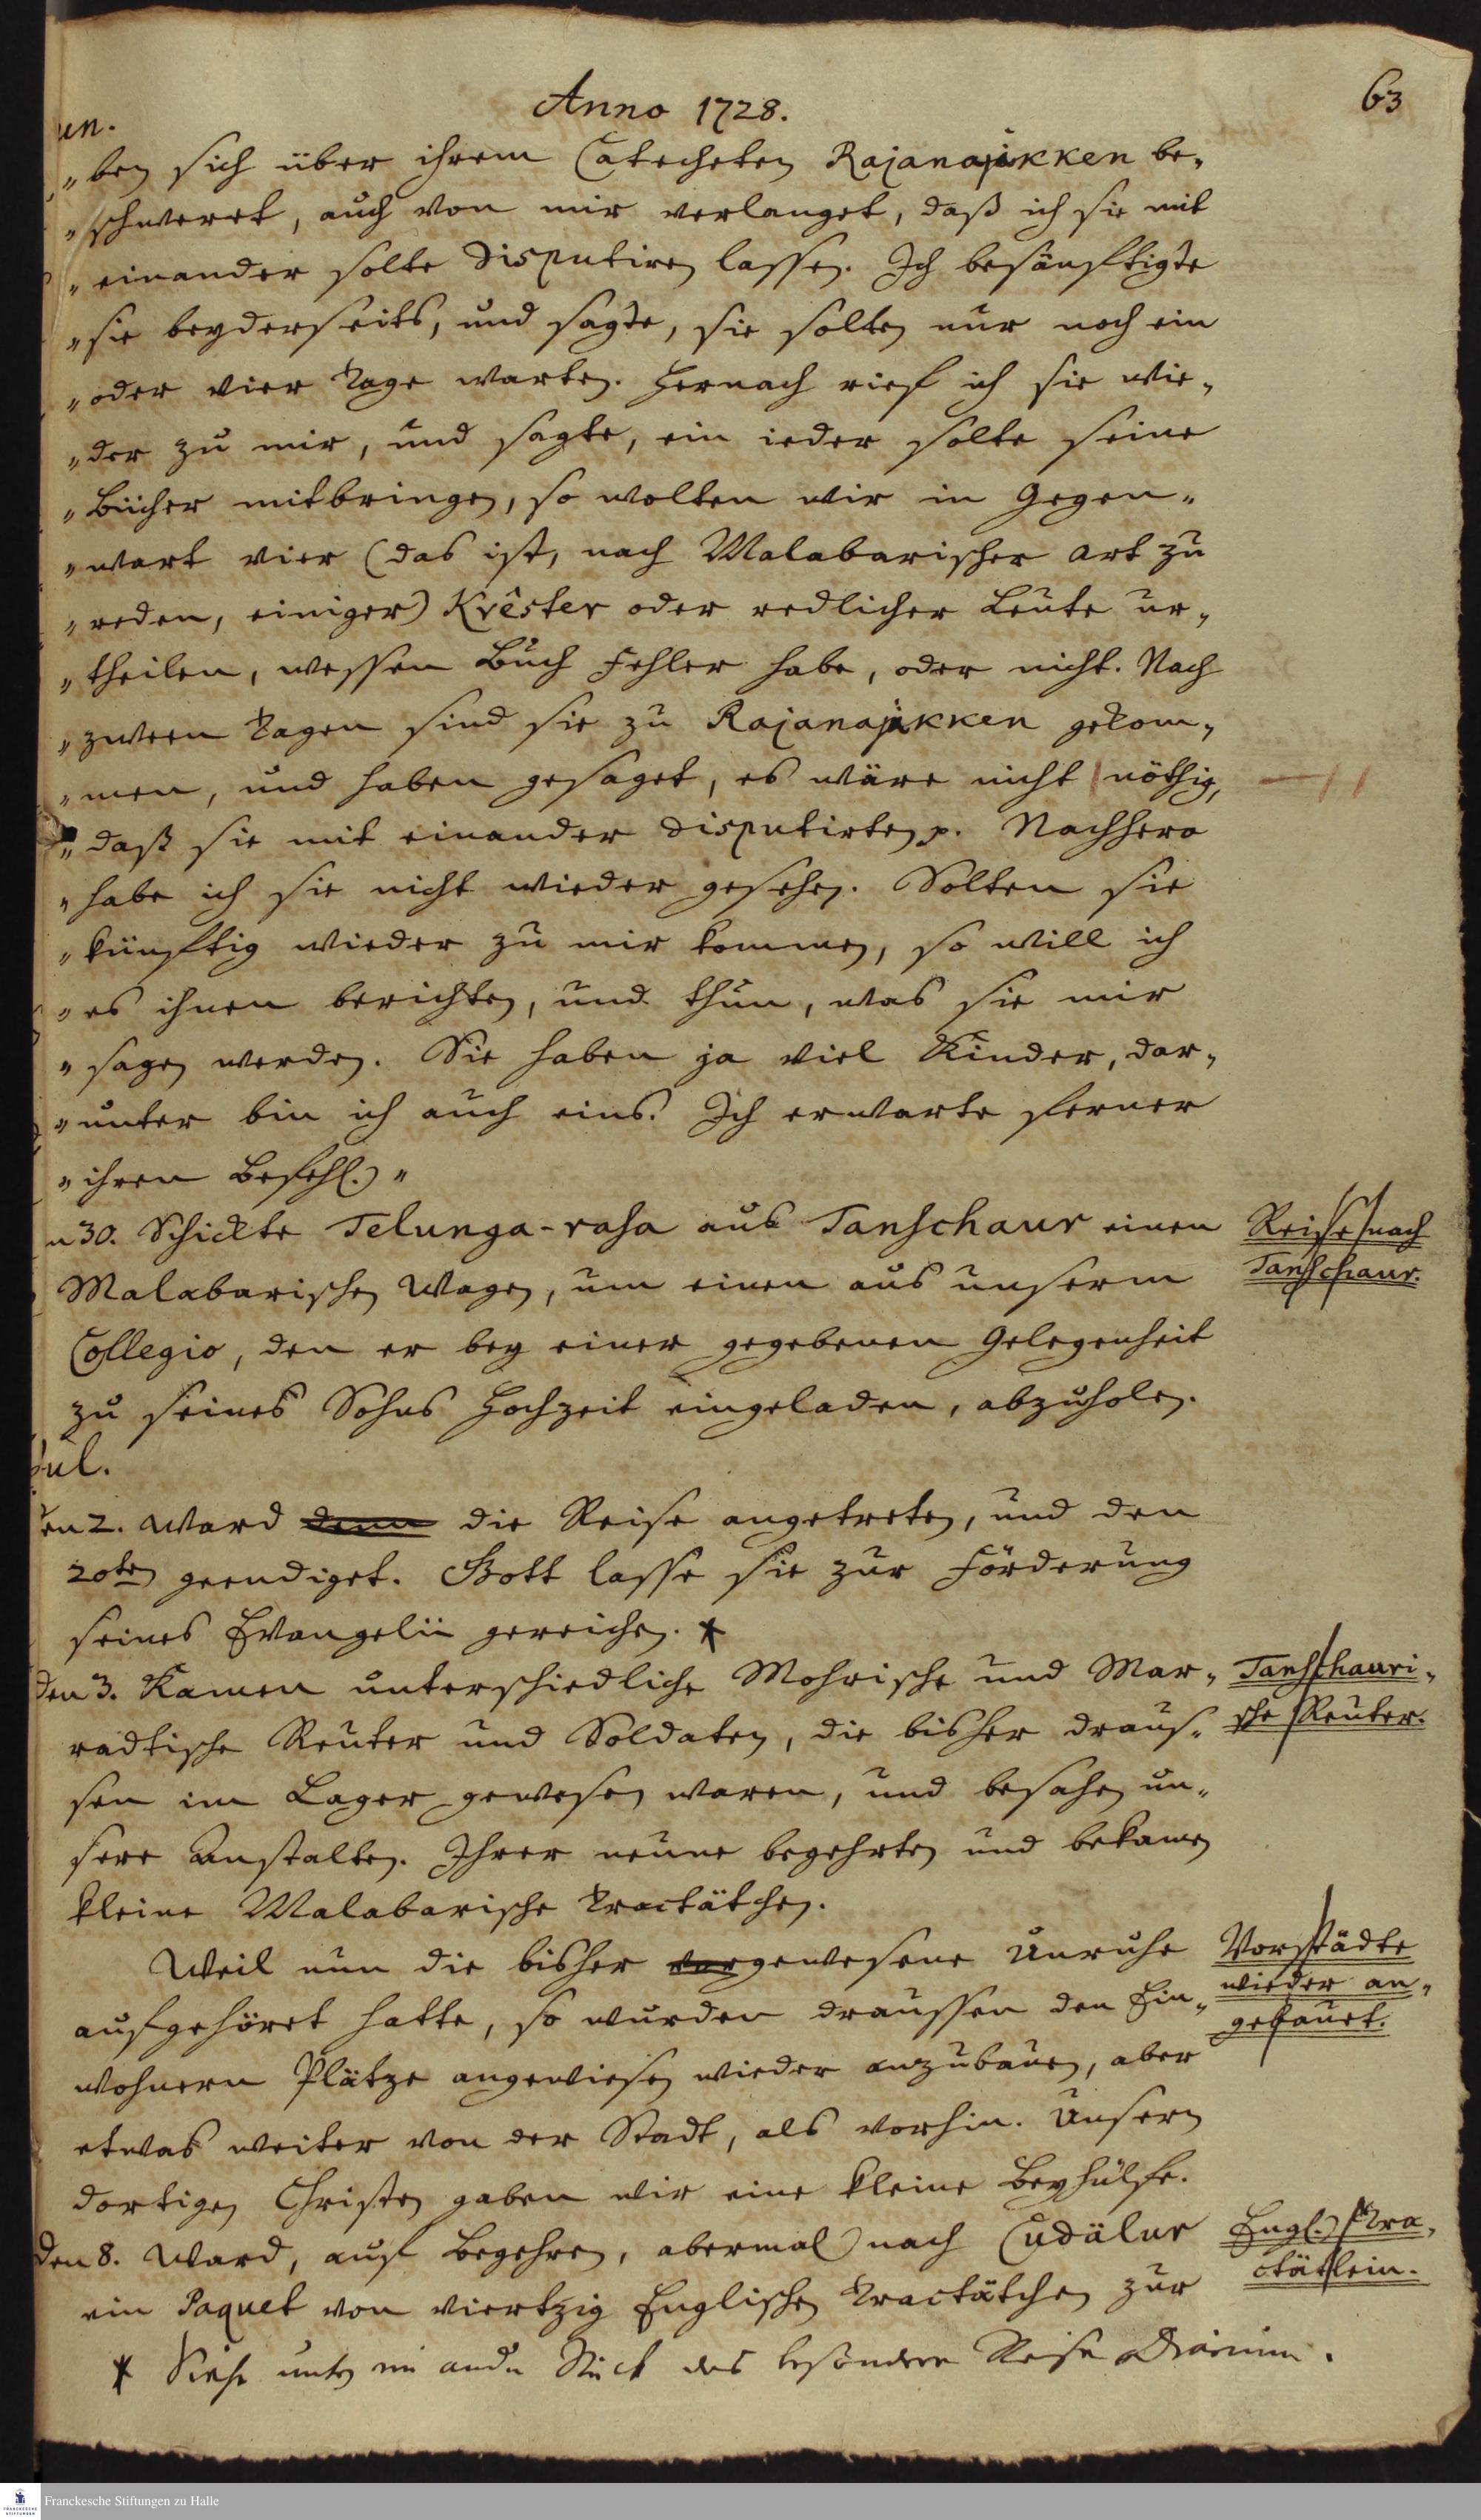 Anno 1728.
63
un.
„ben sich über ihrem Catecheten Rajanajakken be„
„schweret, auch von mir verlanget, daß ich sie mit
„einander solte disputiren lassen. Ich besänftigte
„sie beyderseits, und sagte, sie solten nur noch ein
„oder vier Tage warten. Hernach rief ich sie wie„
„der zu mir, und sagte, ein ieder solte seine
„Bücher mitbringen, so wolten wir in Gegen„
„wart vier (das ist, nach Malabarischer Art zu
„reden, einiger) Krêster oder redlicher Leute ur„
„theilen, wessen Buch Fehler habe, oder nicht. Nach
„zween Tagen sind sie zu Rajanajakken gekom„
„men, und haben gesaget, es wäre nicht nöthig,
„daß sie mit einander disputirten p. Nachhero
„habe ich sie nicht wieder gesehen. Solten sie
„künftig wieder zu mir kommen, so will ich
„es ihnen berichten, und thun, was sie mir
„sagen werden. Sie haben ja viel Kinder, dar„
„unter bin ich auch eins. Ich erwarte ferner
„ihren Befehl.) „
n 30. Schickte Telunga-rasa aus Tanschaur einen
Reise nach
Malabarischen Wagen, um einen aus unserm
Tanschaur.
Collegio, den er bey einer gegebenen Gelegenheit
zu seines Sohns Hochzeit eingeladen, abzuholen.
Jul.
den 2. Ward denn die Reise angetreten, und den
20ten geendiget. Gott lasse sie zur Förderung
seines Evangelii gereichen. *
den 3. Kamen unterschiedliche Mohrische und Mar„
Tanschauri„
radtische Reuter und Soldaten, die bisher draus„
sche Reuter.
sen im Lager gewesen waren, und besahen un„
sere Anstalten. Ihrer neune begehrten und bekamen
kleine Malabarische Tractätchen.
Weil nun die bisher vorgewesene Unruhe
Vorstädte
aufgehöret hatte, so wurden draussen den Ein„
wieder an„
gebauet.
wohnern Plätze angewiesen wieder anzubauen, aber
etwas weiter von der Stadt, als vorhin. Unsern
dortigen Christen gaben wir eine kleine Beyhülfe.
den 8. Ward, auf Begehren, abermal nach Cudälur
Engl. Tra„
ein Paquet von viertzig Englischen Tractätchen zur
ctätlein.
* Siehe unten im andn Stück das besondere Reise Diarium.
Franckesche Stiftungen zu Halle